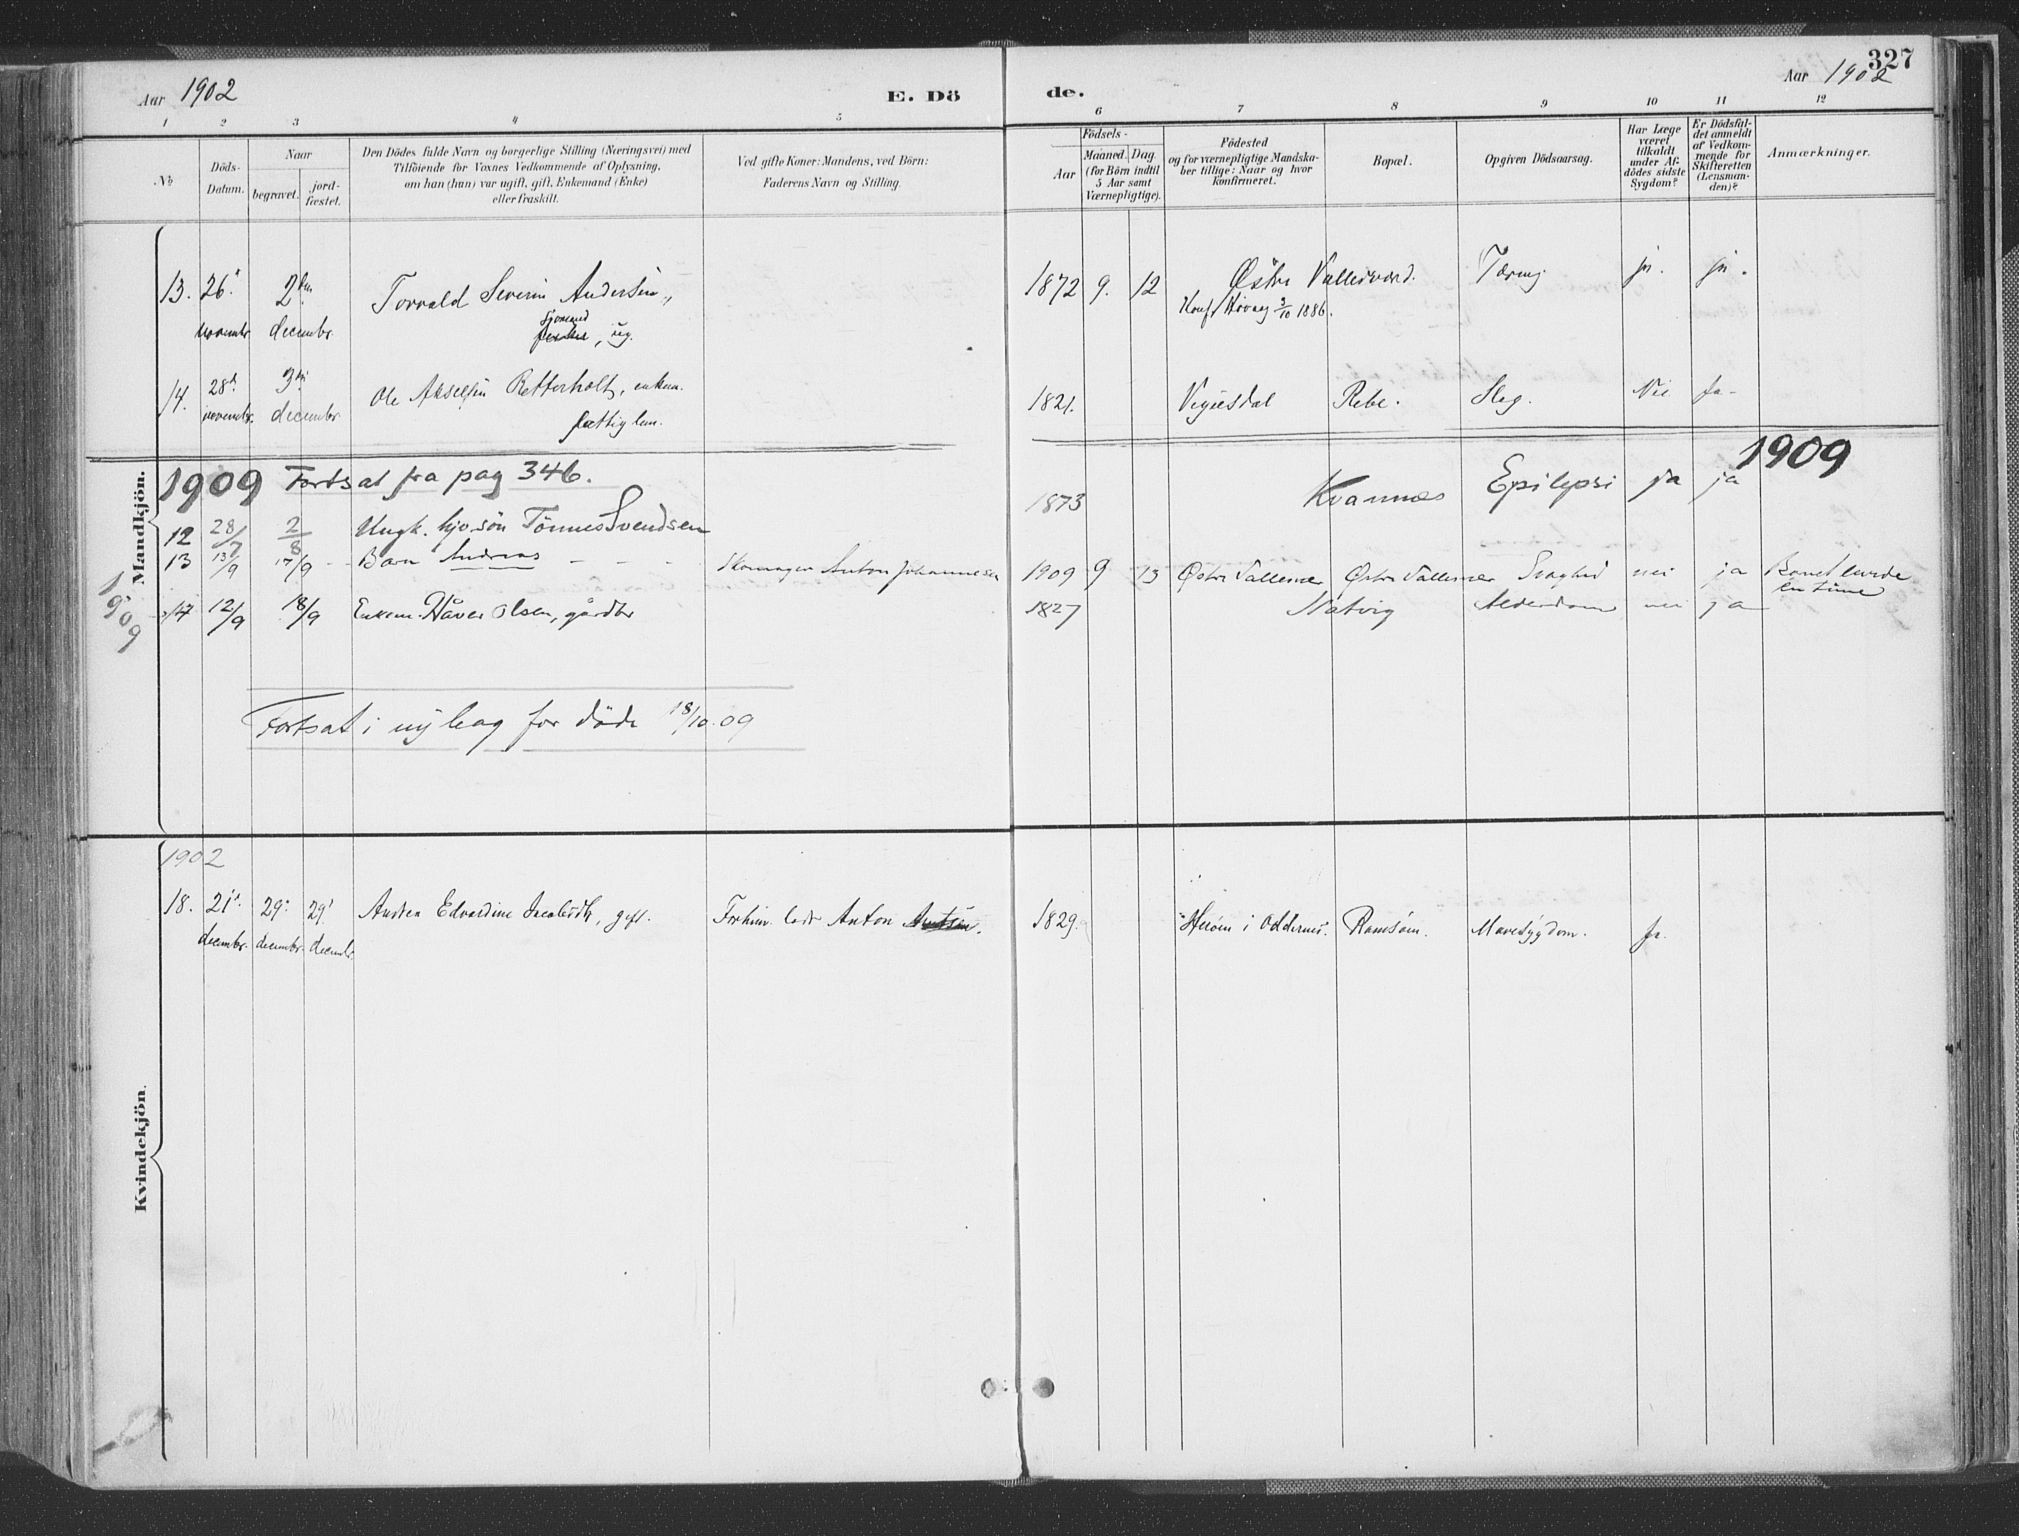 327
Aar 1902
E. Dö
de.
Aar 1902
1 2 3 4 5 6 7 8 9 10 11 12
No
Döds-Datum.
Naar
begravet.
jord-fæstet.
Den Dödes fulde Navn og borgerlige Stilling (Næringsvei) med
Tilföiende for Voxnes Vedkommende af Oplysning,
om han (hun) var ugift, gift, Enkemand (Enke)
eller fraskilt.
Ved gifte Koner: Mandens, ved Börn:
Faderens Navn og Stilling.
Födsels-
Aar
Maaned. Dag
(for Börn indtil
5 Aar samt
Værnepligtige).
Födested
og for værnepligtige Mandska-
ber tillige: Naar og hvor
konfirmeret.
Bopæl.
Opgiven Dödsaarsag.
Har Læge
været
tilkaldt
under Af-
dödes sidste
Sygdom?
Er Dödsfal-
det anmeldt
af Vedkom-
mende for
Skifteretten
(Lensman-
den)?
Anmærkninger.
Mandkjön.
13. 26. novembr. 2den decembr. Torvald Severin Andersen, 1872 9. 12 Østre Vallesværd. Tæring ja. ja.
sjomand
ug. Konf. Høvaag 3/10 1886.
14. 28d. novembr. 3die decembr. Ole Akselsen Retterholt, enkem. 1821. Vegusdal Ribe. Slag. Nei Ja
fattiglem.
1909 Fortsat fra pag 346. 1909
12 28/7 2/8 Ungk. Tönnes Svendsen 1873 Kvannes Epilepsi ja ja
13 13/9 17/9 Barn Andreas Skomager Anton Johannesen 1909 9 13 Østre Vallesvær Østre Vallesvær Svaghed nei ja Barnet levede
en time
14 12/9 18/9 Enkem. Håver Olsen, gårdbr 1827 Natvig Alderdom nei ja
1909
Fortsat i ny bog for döde 18/10.09
Kvindekjön.
1902
18. 21. decembr. 29. decembr. 29. decembr. Andrea Edvardine Jacobsdtr., gift. Forhenv. lods Anton 1829. i Oddernes. Ramsøen. Mavesygdom. ja.